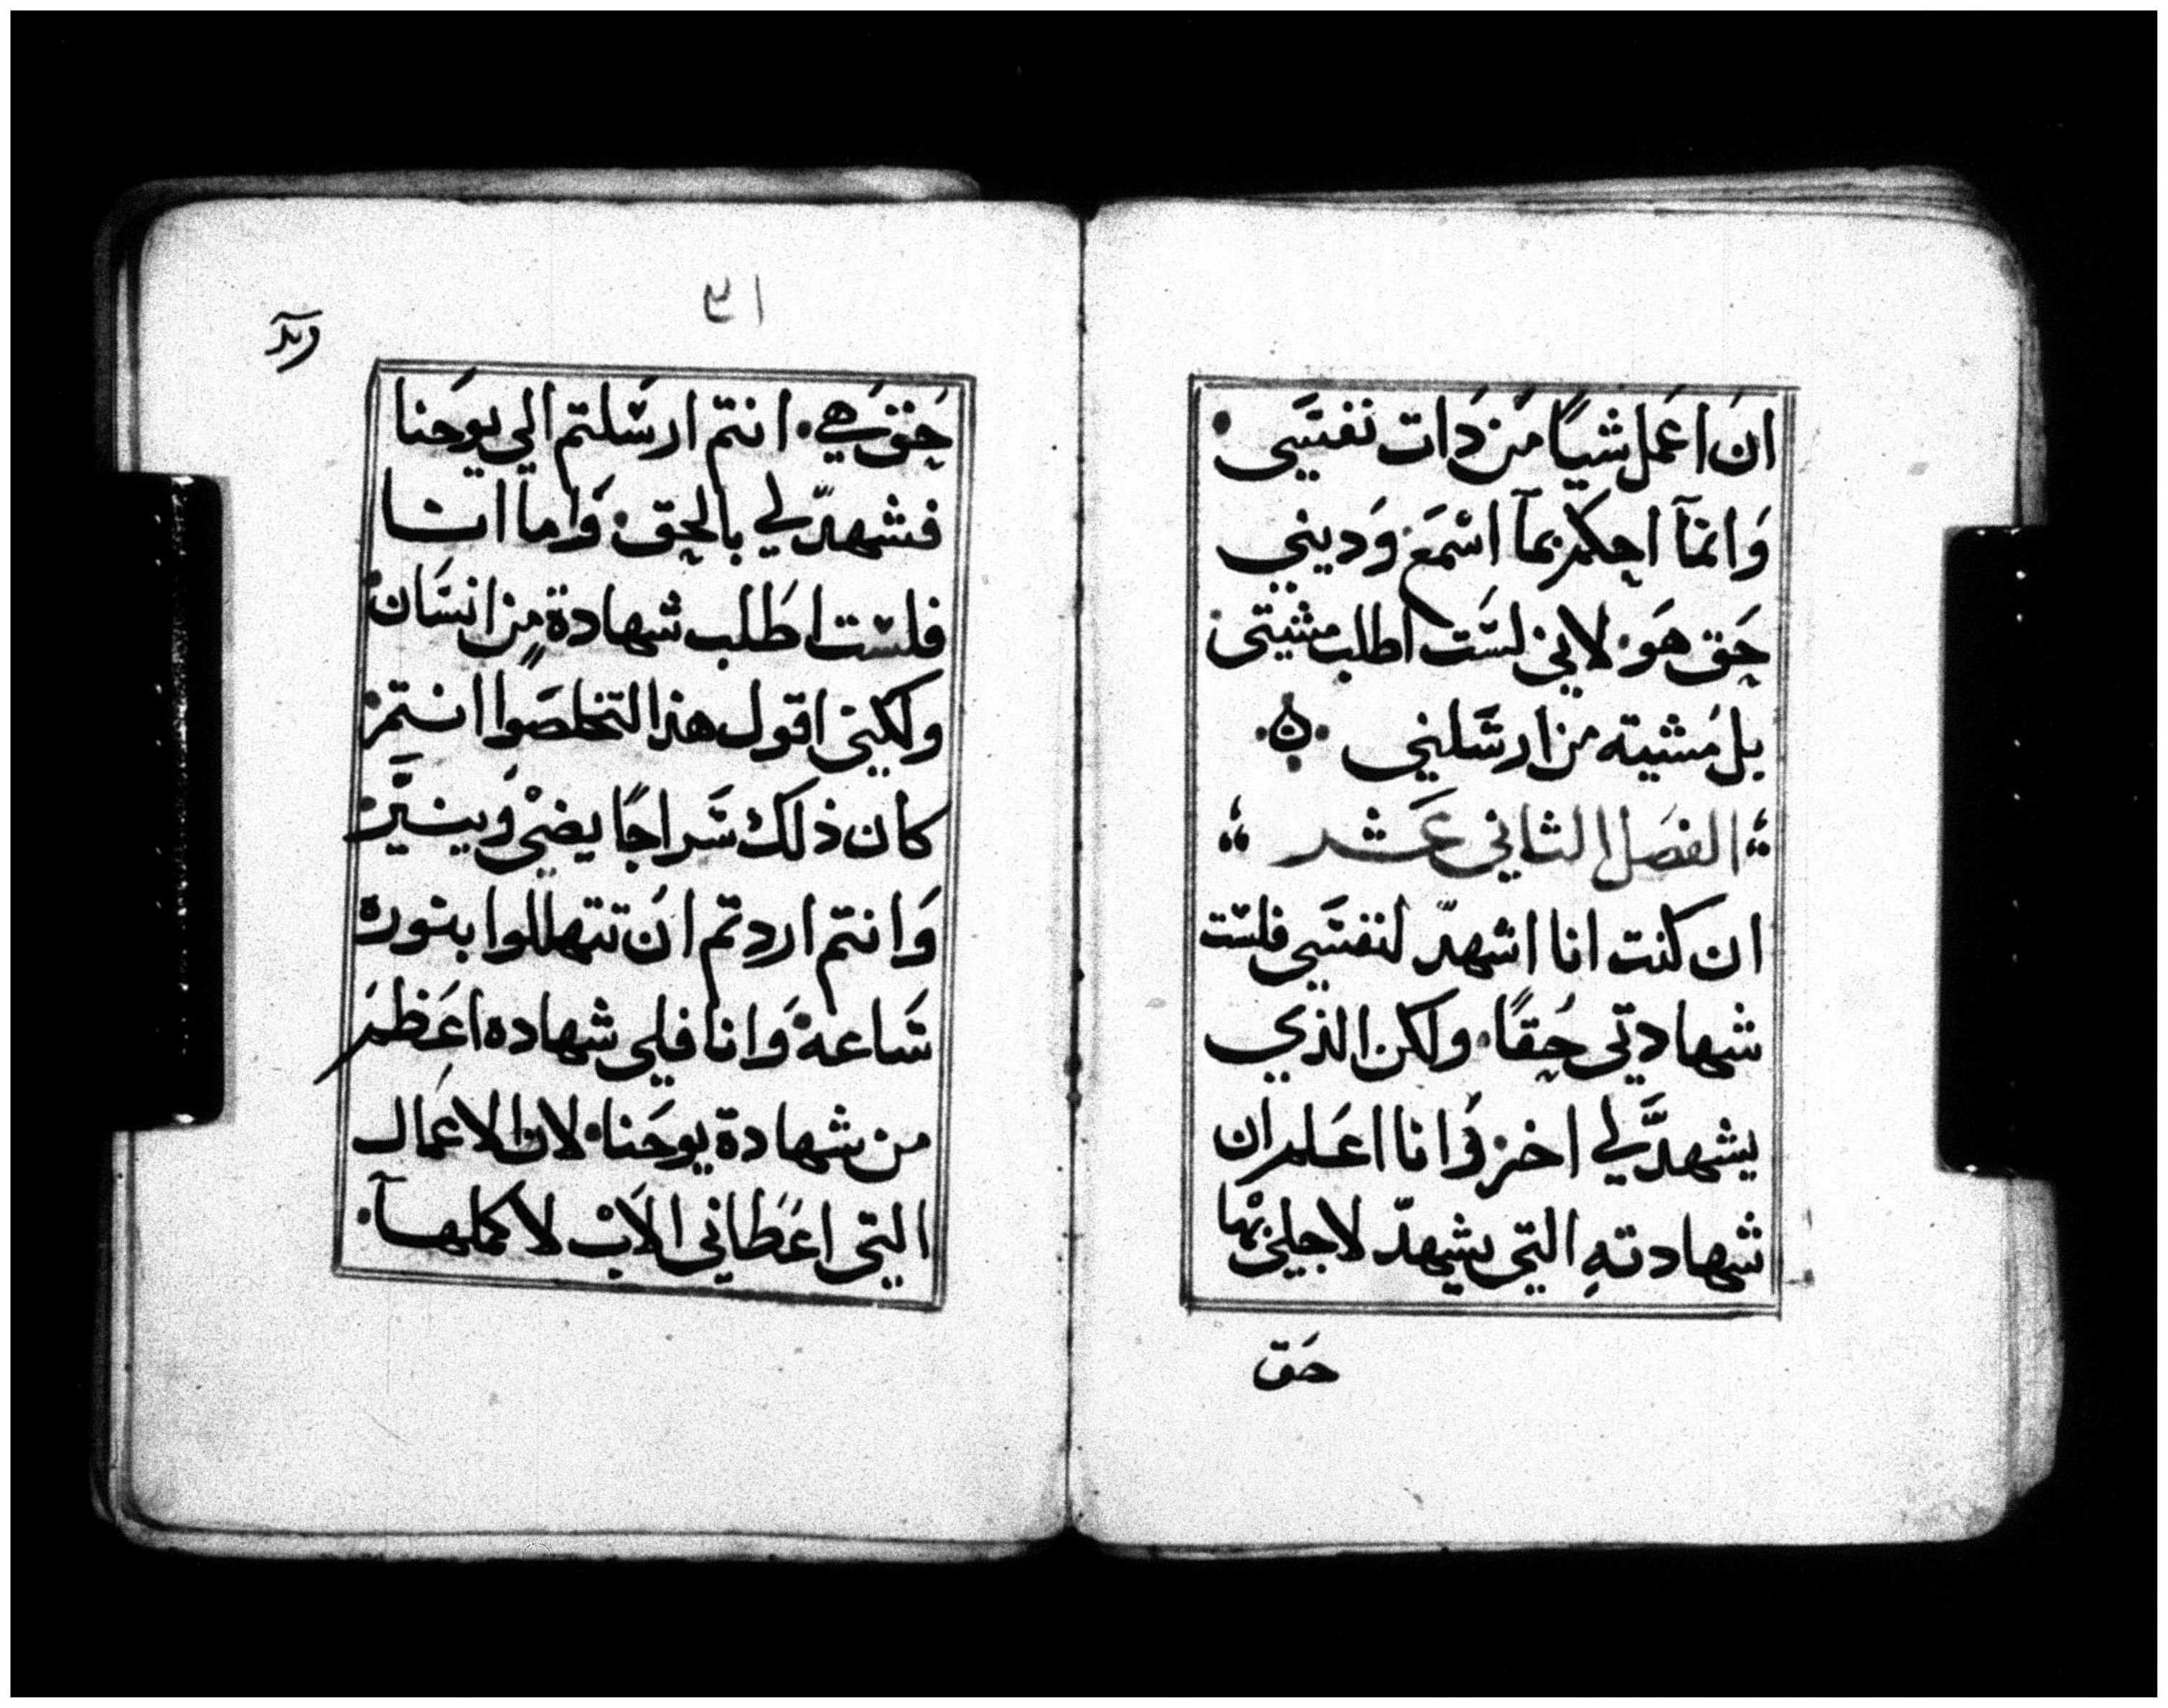 ان اعمل شياً من ذات نفسي
وانمآ احكم بمآ اسمع وديني
حق هو لاني لست اطلب مشيتي
بل مشيته من ارسلني
الفصل الثاني عشر
ان كنت انا اشهد لنفسي فلست
شهادتي حقاً ولكن الذي
يشهد لي اخر وانا اعلم ان
شهادته التي يشهد لاجلي بها
حق
٣١
حق هي انتم ارسلتم الي يوحنا
فشهد لي بالحق واما انا
فلست اطلب شهادة من انسان
ولكني اقول هذا لتخلصوا انتم
كان ذلك سراجاً يضي وينير
وانتم اردتم ان تتهللوا بنوره
ساعة وانا فلي شهاده اعظم
من شهادة يوحنا لان الاعمال
التي اعطاني الاب لاكملهآ